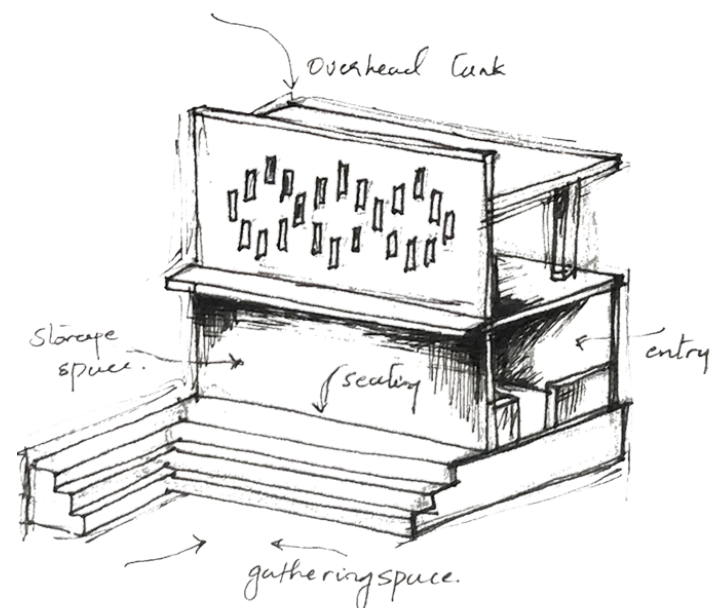 overhead tank
storage
space.
seating
entry
gathering space.